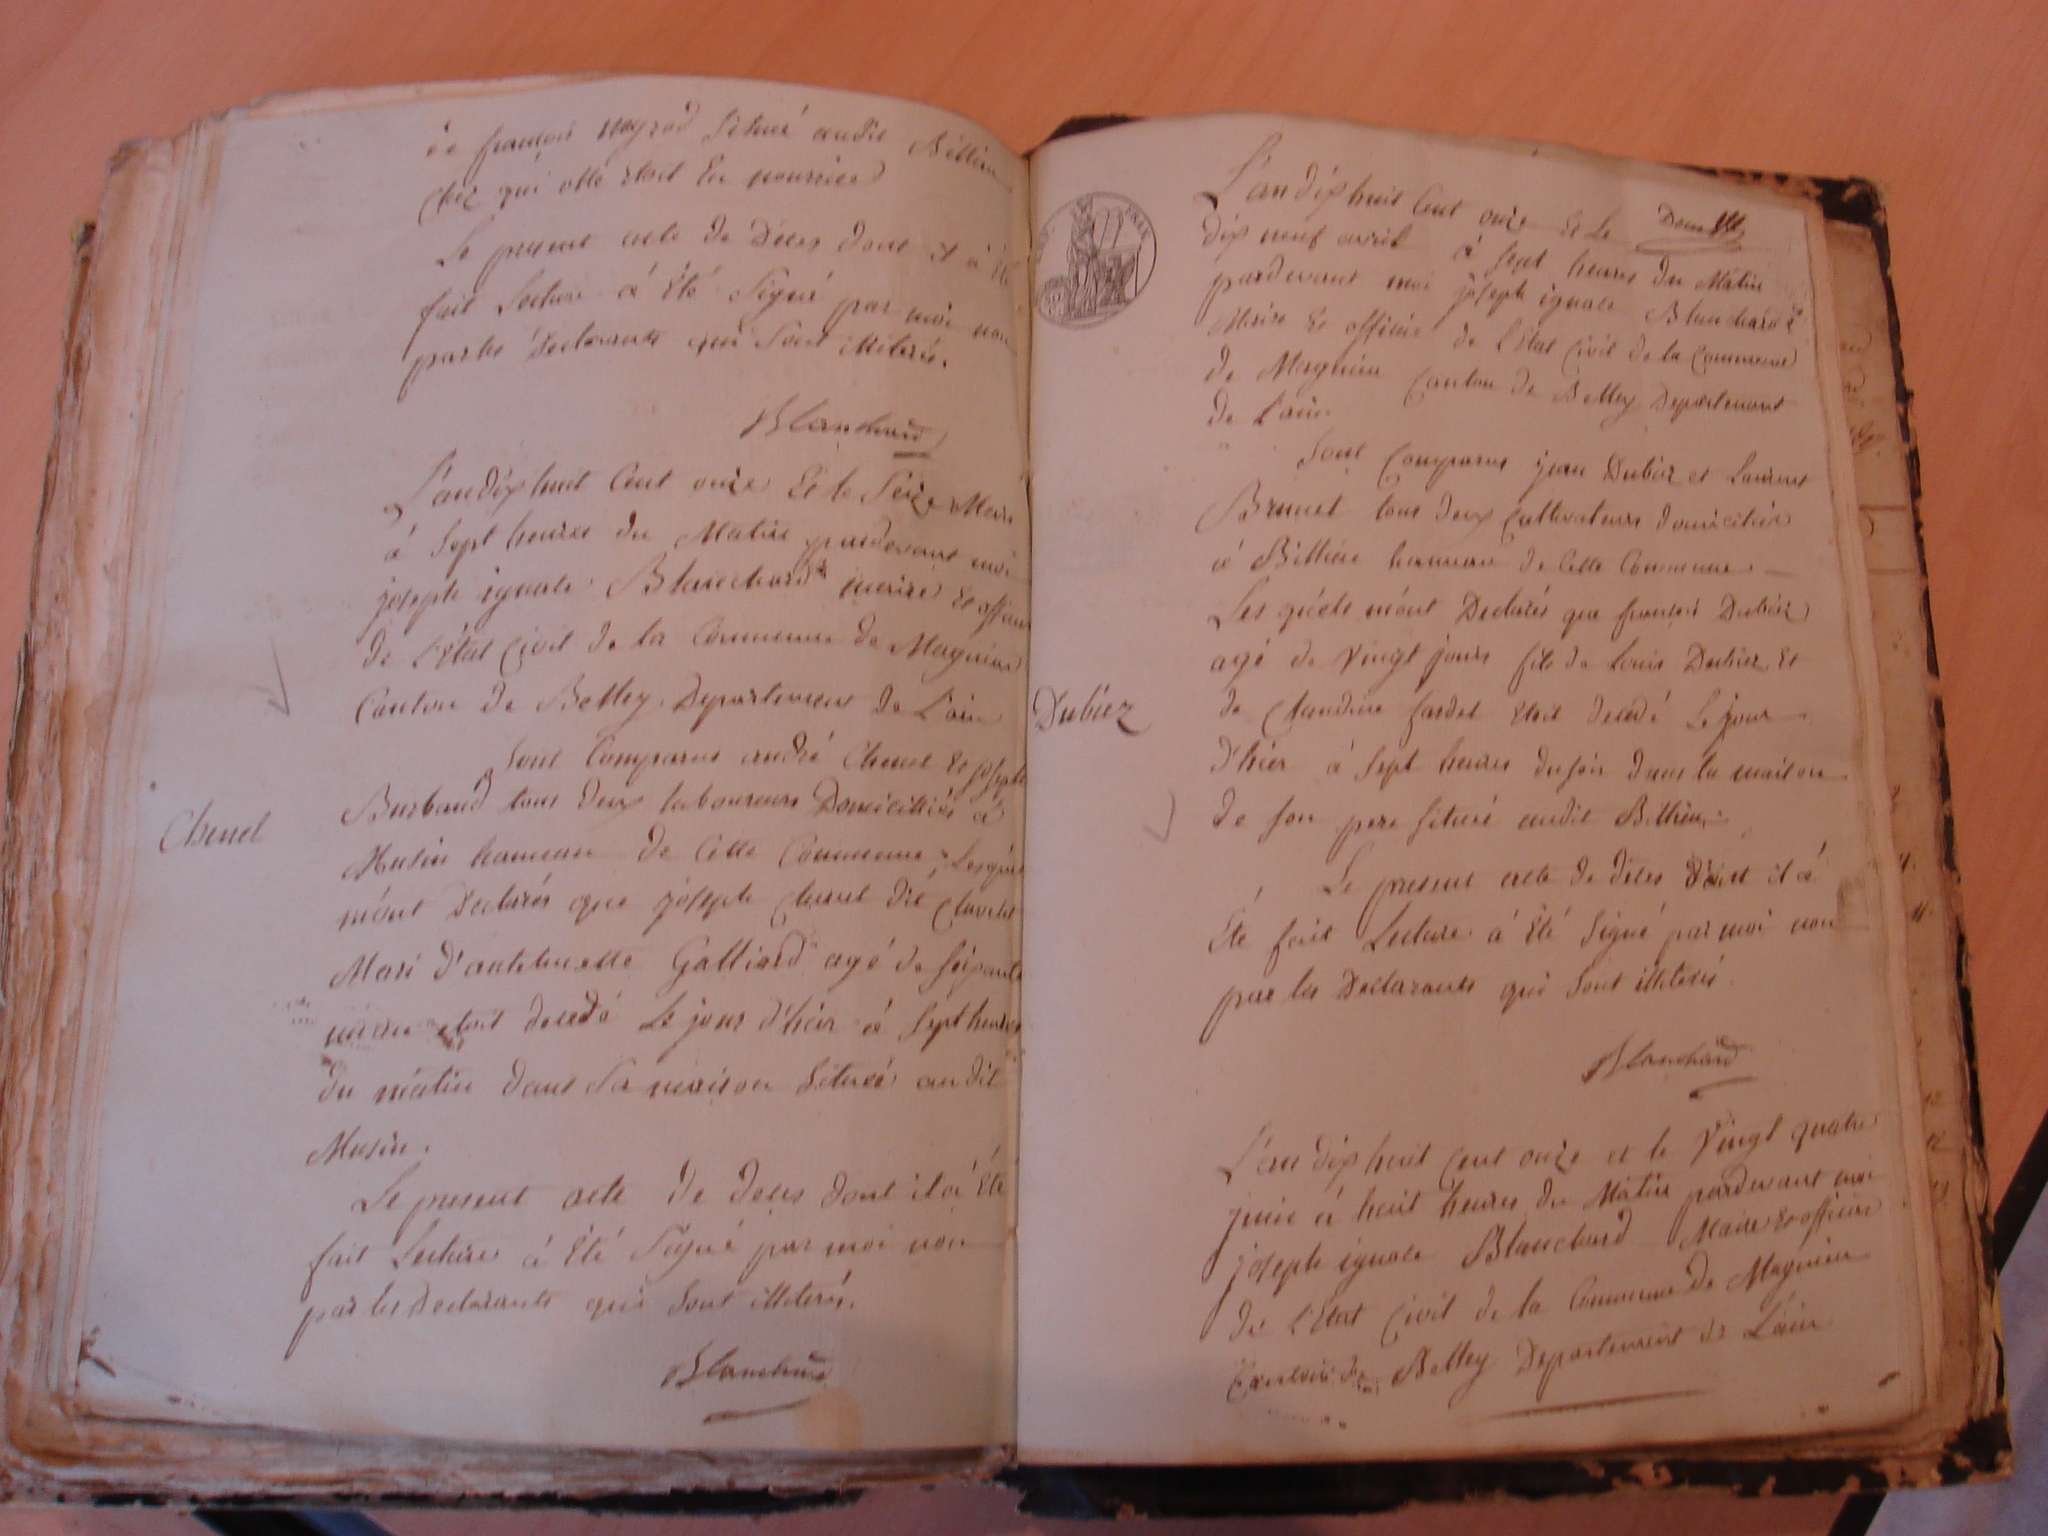 de françois situué audit Billieu
chez qui elle etoit En nourrice
Le present acte de Déces dont il à Été
fait Lecture à Été Signé par moi non
par les Declarants qui Sont illiterés.
Blanchard
L'an dix huit Cent onze Et le Seize Mars
à Sept heures du Matin pardevant moi
joseph ignace Blanchard maire Et officier
de l'Etat Civil de la Commune de Magnieu
Canton de Belley Departement de L'ain
Sont Comparus andré Chenel Et joseph
Burbaud tous deux laboureurs Domicilliés à
Chenel
Musin hameau de Cette Commune Lesquels
m'ont Declarés que joseph Chenel dit
Mari d'antoinette Galliard agé de soixante
etoit decedé Le jour d'hier à Sept heures
du matin dans Sa maison Situeé audit
Musin.
Le present acte de deces dont il à Été
fait Lecture à Eté Signé par moi non
par les Declarants qui Sont illiterés.
Blanchard
L'an dix huit Cent onze Et Le
dix neuf avril à sept heures du Matin
pardevant moi joseph ignace Blanchard
Maire Et officier de l'Etat Civil de la Commune
de Magnieu Canton de Belley Departement
de L'ain
Sont Comparus jean Dubiez et Laurent
Brunet tous deux Cultivateurs domiciliés
à Billieu hameau de Cette Commune
Lesquels m'ont Declarés que françois Dubiez
agé de Vingt jours fils de Louis Dubiez Et
Dubiez
de Claudine fardel Etoit decedé Le jour
d'hier à Sept heures du soir dans la maison
de son pere situeé audit Billieu.
Le present acte de déces dont il à
Été fait Lecture à Été Signé par moi non
par les Declarants qui Sont illiterés.
Blanchard
L'an dix huit Cent onze et le Vingt quatre
juin à huit heures du Matin pardevant moi
joseph ignace Blanchard Maire Et officier
de l'Etat Civil de la Commune de Magnieu
Canton de Belley Departement de L'ain